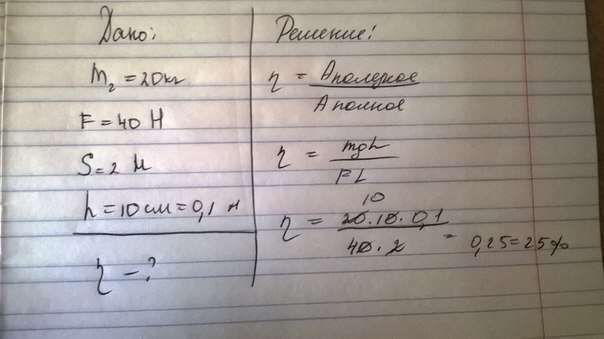 Дано:
m₂ = 20 кг
F = 40 Н
S = 2 м
h = 10 см = 0,1 м
η - ?
Решение:
η = Аполезное / Аполное
η = mgh / FL
10
η = 20·10·0,1 / 40·2 = 0,25 = 25%